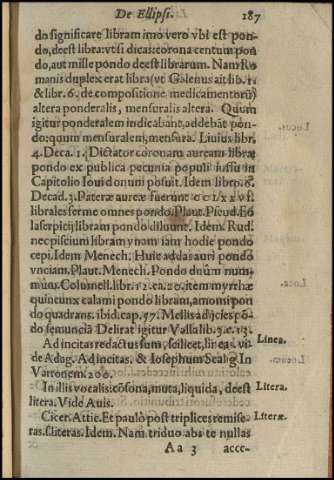 De Ellipsi. 187
do significare libram imo vero vbi est pon-
do, deest libra: vt si dicas: corona centum pon
do, aut mille pondo deest librarum. Nam Ro
manis duplex erat libra (vt Galenus ait lib. 1.
& libr. 6. de compositione medicamentorū)
altera ponderalis, mensuralis altera. Quum
igitur ponderalem indicabant, addebāt pon-
do: quum mensuralem, mensura. Liuius libr. Locus.
4. Deca. 1. Dictator coronam auream libræ
pondo ex publica pecunia populi iussu in
Capitolio Ioui donum posuit. Idem libro. 6.
Decad. 3. Pateræ aureæ fuerunt
librales ferme omnes pondo. Plaut. Pseud. Eo
laserpicij libram pondo diluunt. Idem. Rud.
nec piscium libram vnam iam hodie pondo
cepi. Idem Menech. Huic addas auri pondo
vnciam. Plaut. Menech. Pondo duûm num-
mum. Columell. libr. 12. ca. 20. item myrrhæ Loca.
quincunx calami pondo libram, amomi pon
do quadrans. ibid. cap. 47. Mellis adjicies pō
do semunciā Delirat igitur Valla lib. 3. c. 13.
Ad incitas redactus sum, scilicet, lineas. vi- Linea.
de Adag. Ad incitas. & Iosephum Scalig. In
Varronem. 200.
In illis vocalis: cōsona, muta, liquida, deest Litera.
litera. Vide Auis.
Cicer. Attic. Et paulò post triplices remise- Literæ.
ras. s. literas. Idem. Nam triduo abs te nullas
Aa 3 acce-